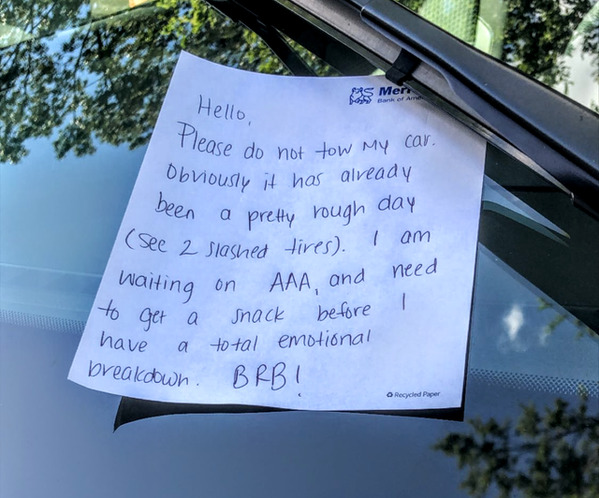 Bank of Ame
Hello,
Please do not tow my car.
Obviously it has already
been a pretty rough day
(see 2 slashed tires). I am
waiting on AAA, and need
to get a snack before I
have a total emotional
breakdown. BRB!
Recycled Paper